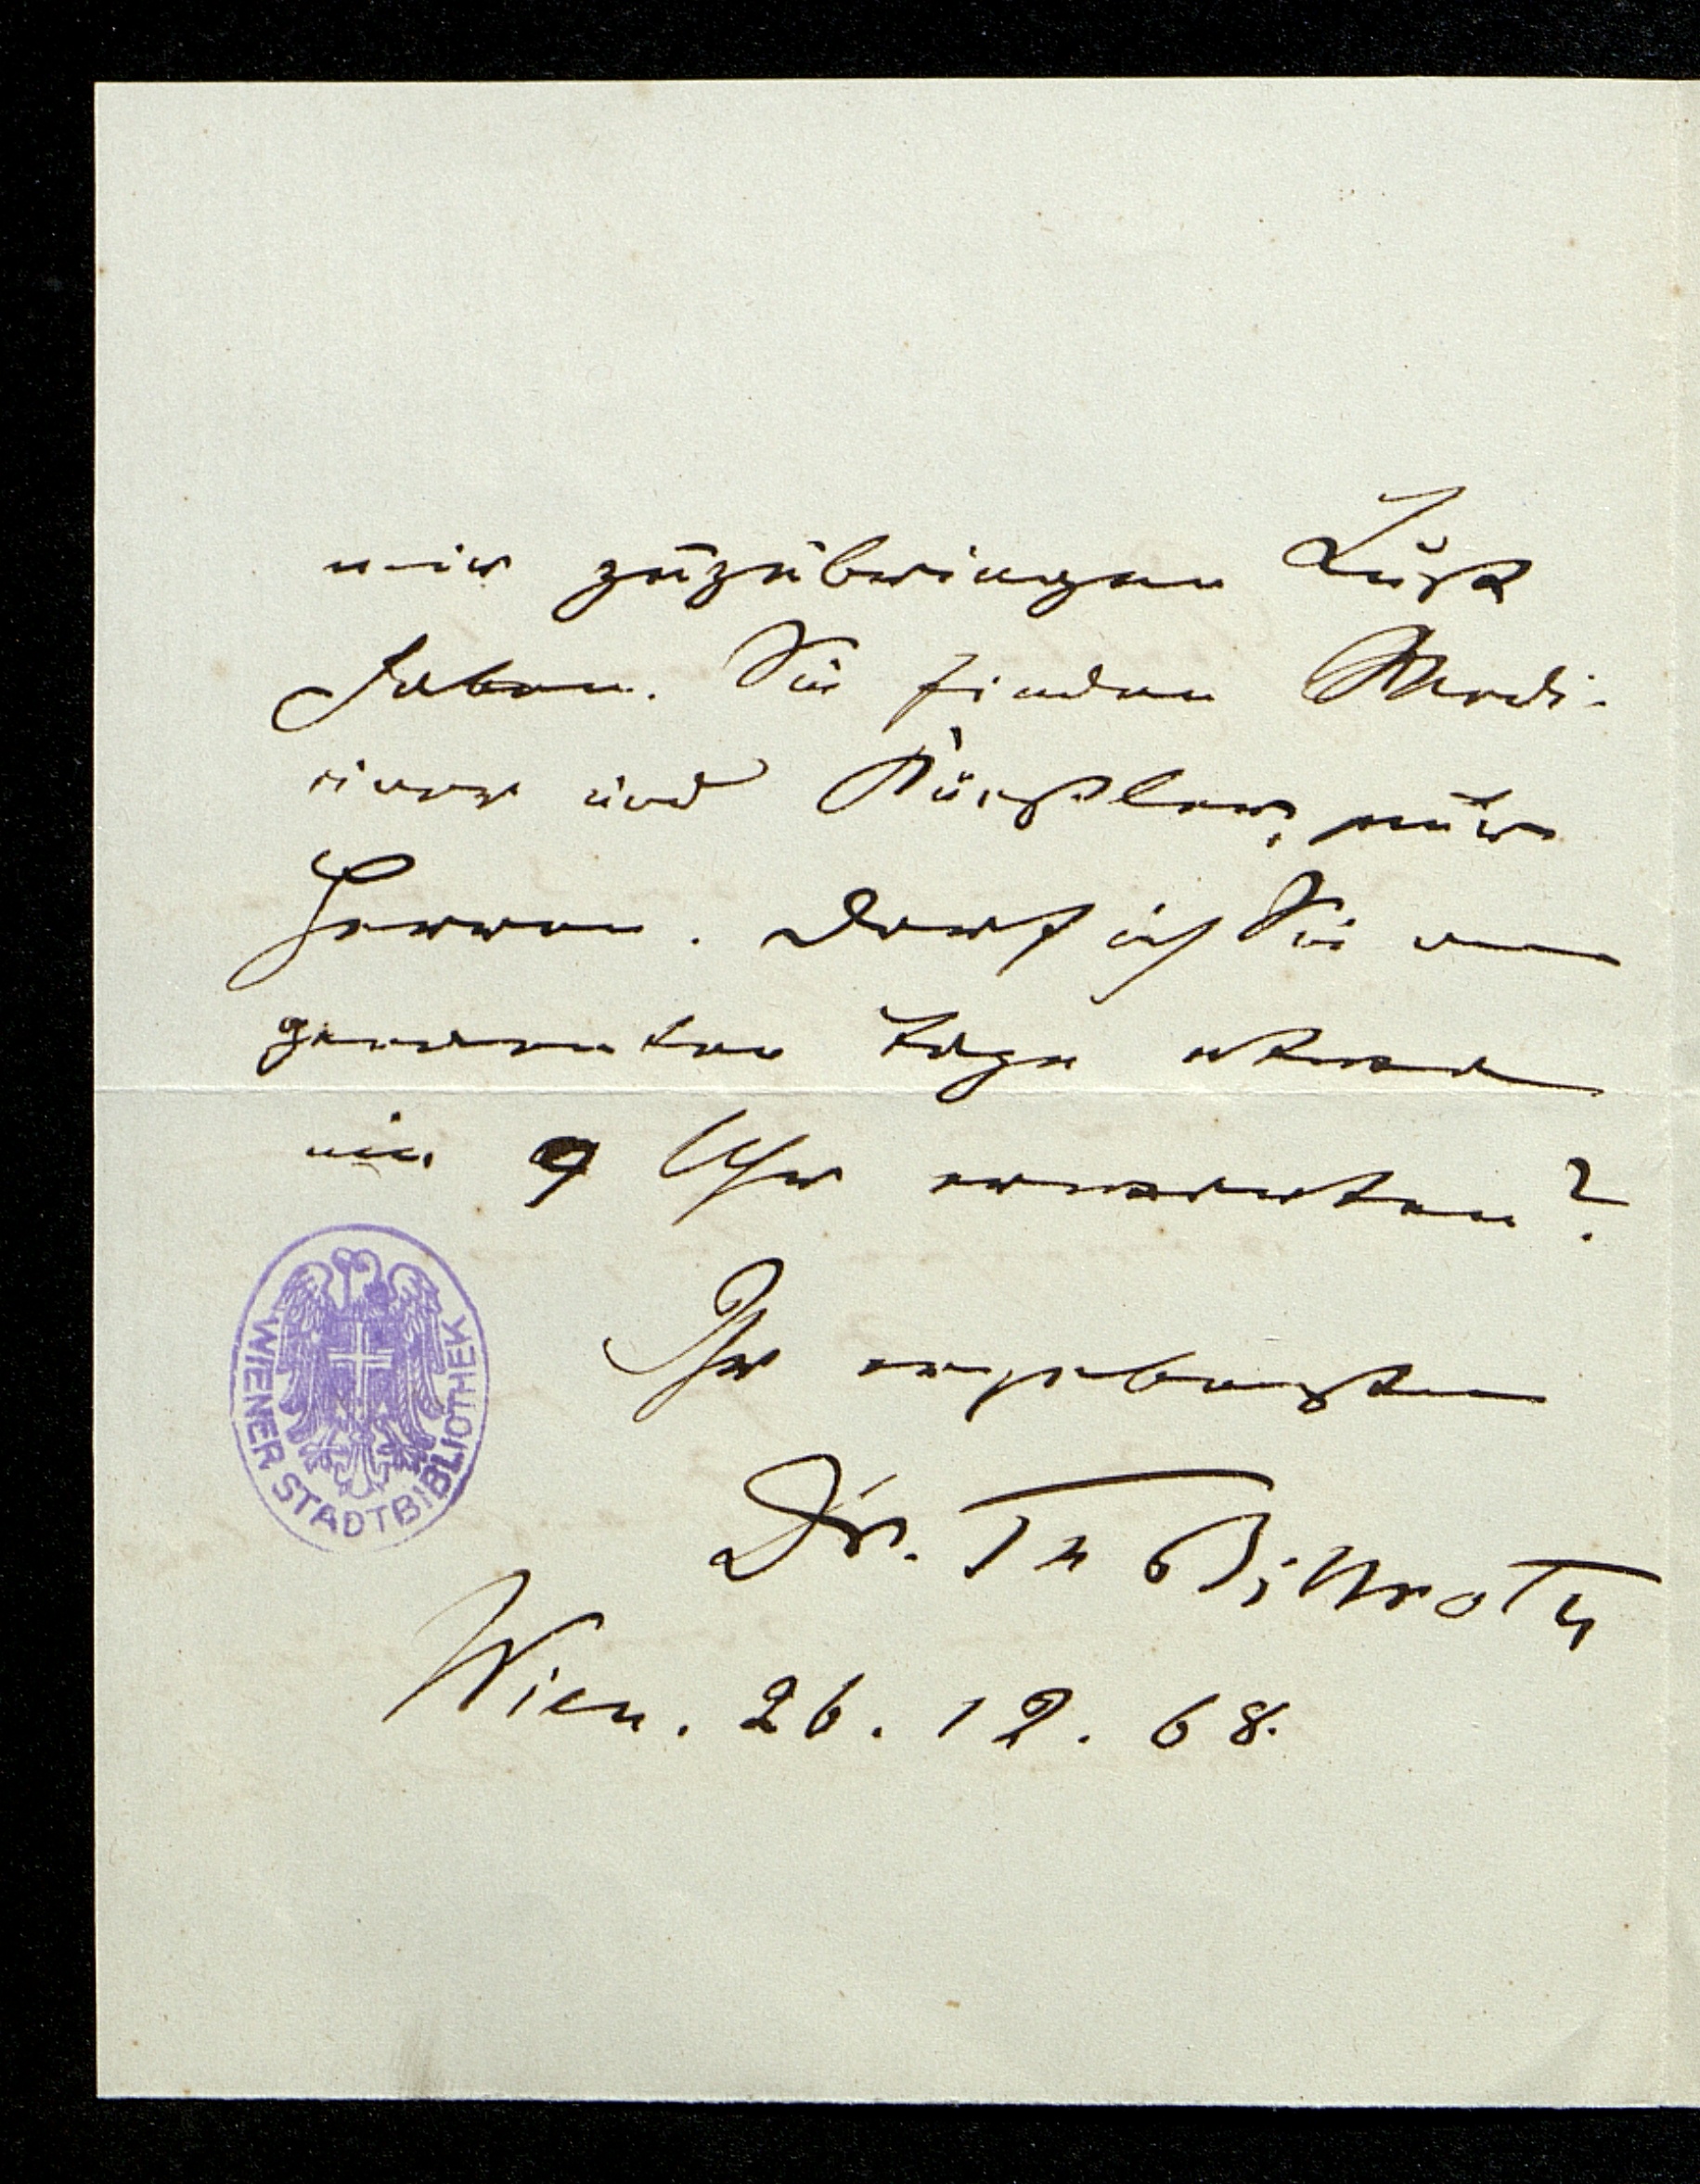 mir zuzubringen Lust
haben. Sie finden Medi-
ciner und Künstler, nur
Herren. Darf ich Sie am
genannten Tage etwa
um 9 Uhr erwarten?
Ihr ergebenster
Dr. Th Billroth
Wien. 26. 12. 68.
WIENER STADTBIBLIOTHEK